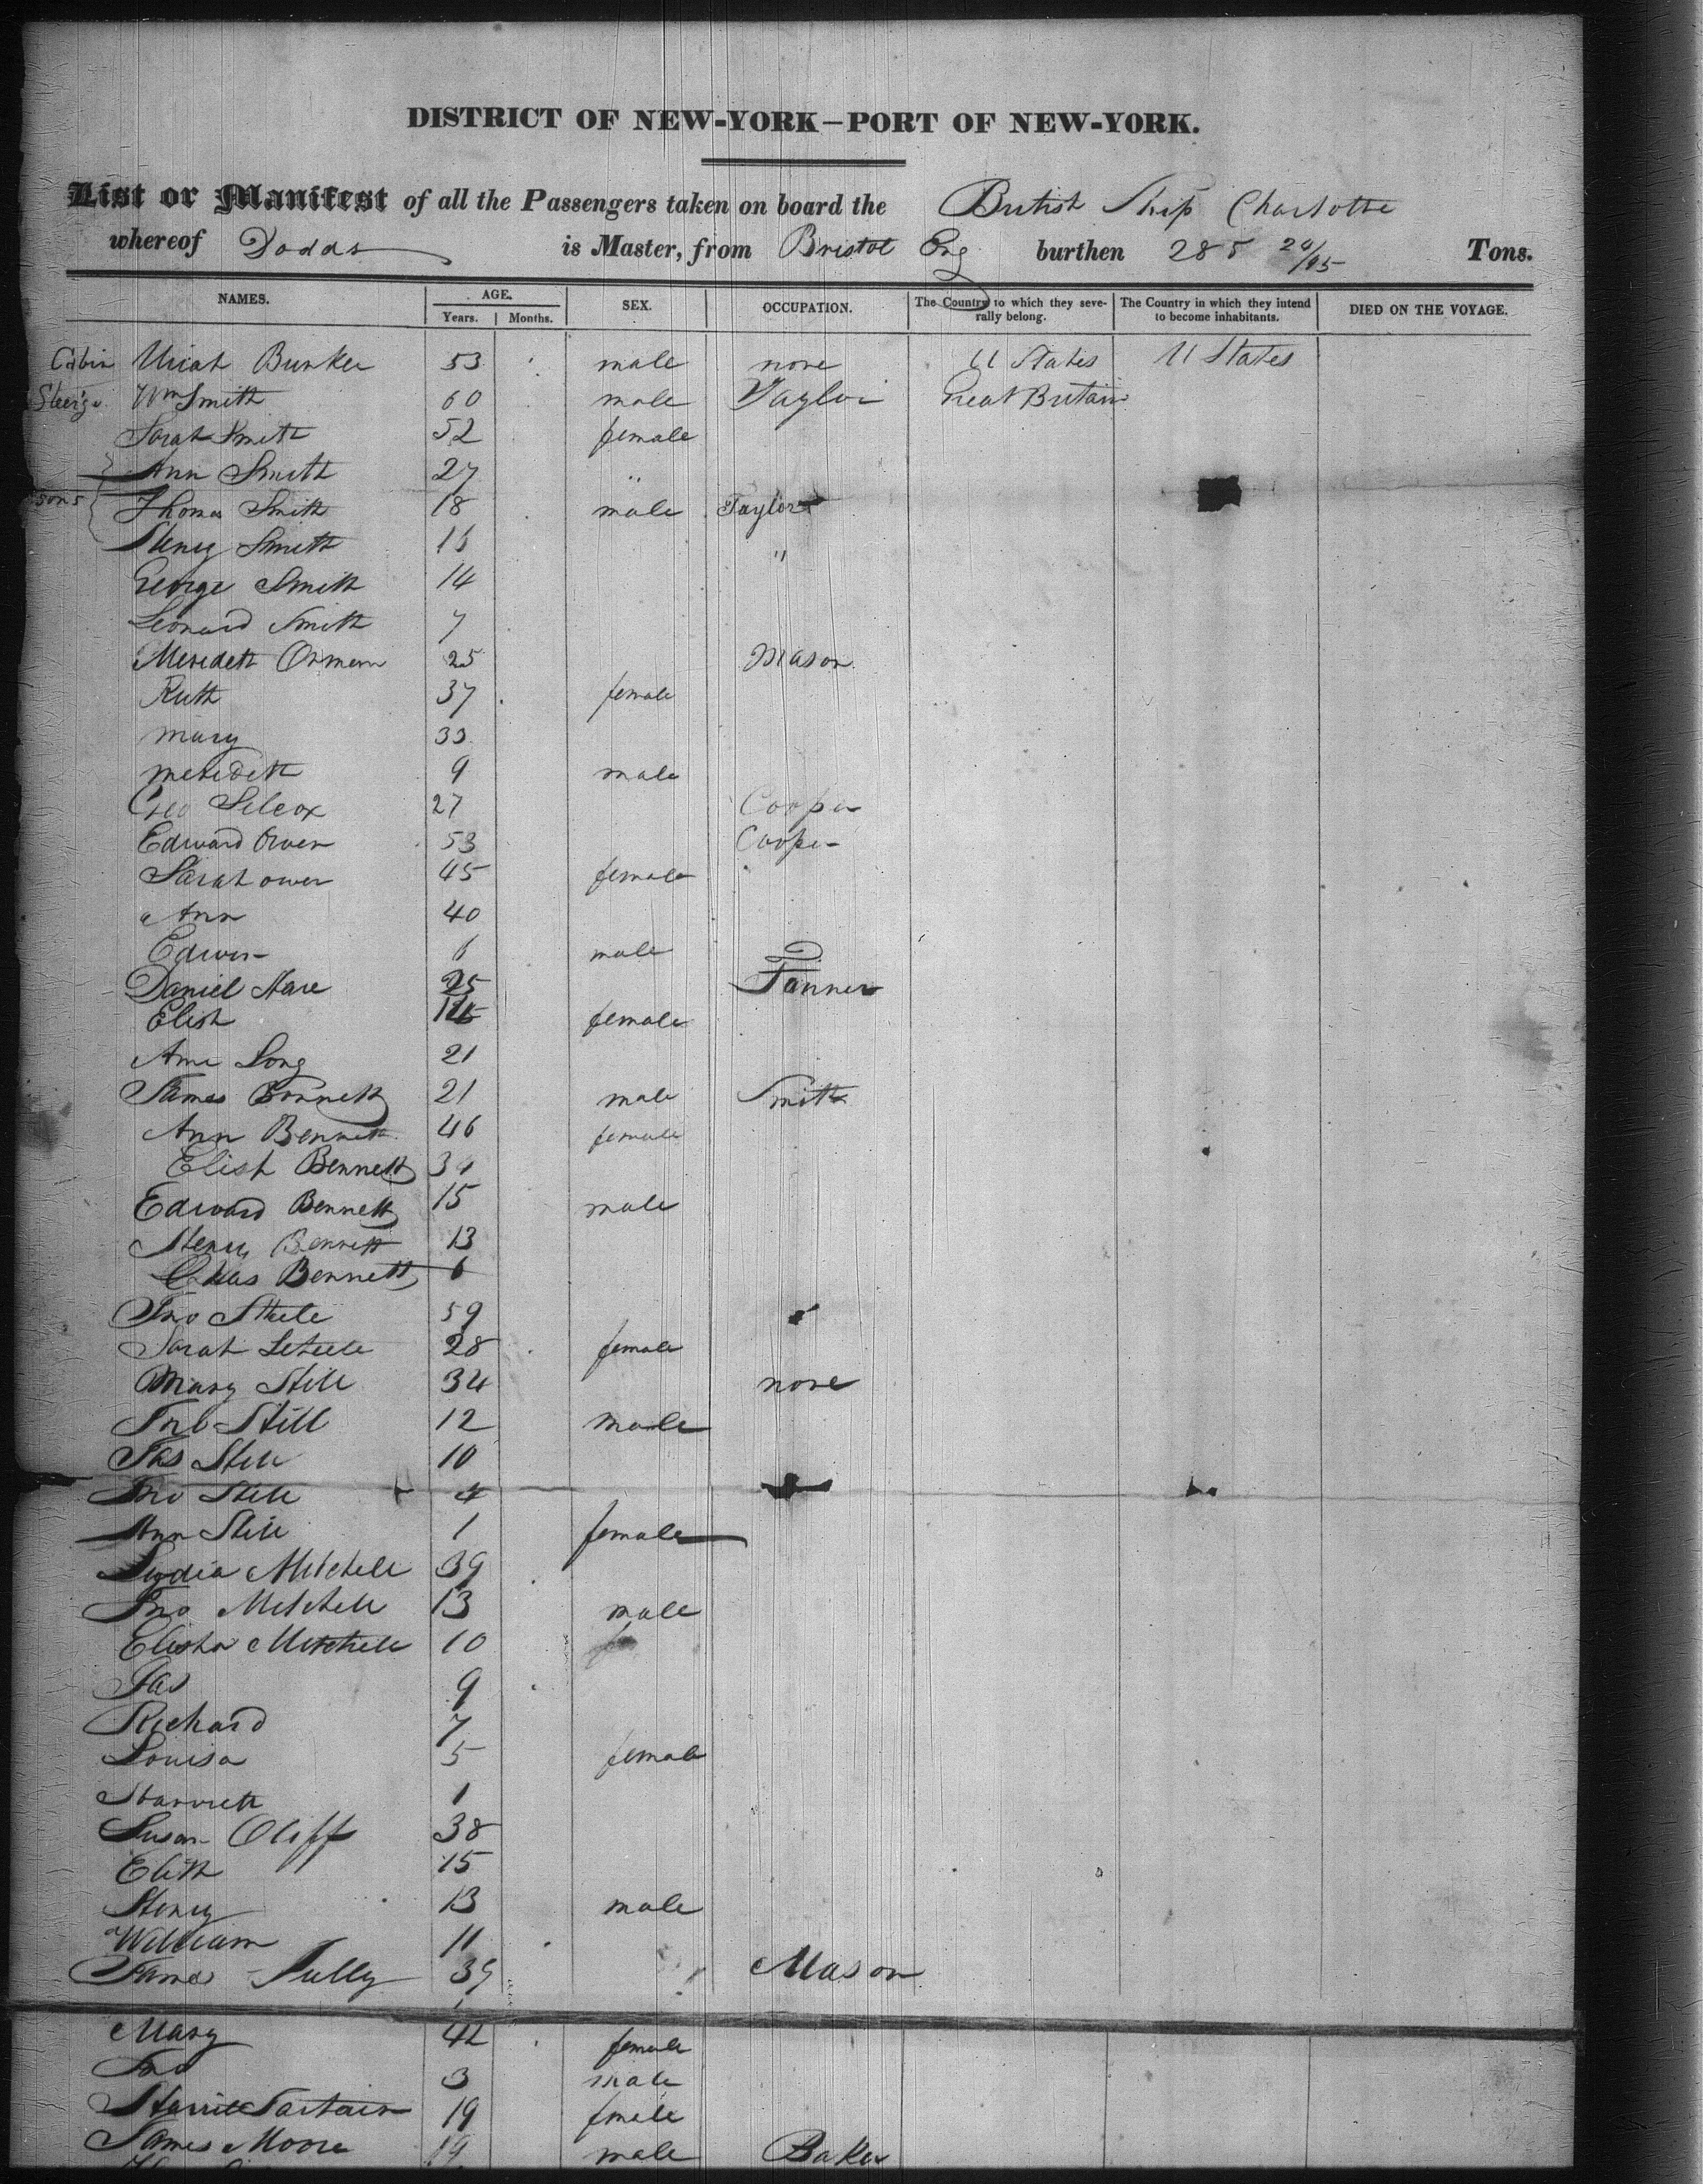 DISTRICT OF NEW-YORK—PORT OF NEW-YORK.
List or Manifest of all the Passengers taken on board the British Ship Charlotte
whereof Dodds is Master, from Bristol Eng burthen 285 24/95 Tons.
NAMES. AGE. Years. Months. SEX. OCCUPATION. The Country to which they severally belong. The Country in which they intend to become inhabitants. DIED ON THE VOYAGE.
Cabin Uriah Bunker 53 male none U States U States
Steerge Wm Smith 60 male Taylor Great Britain
Sarah Smith 52 female
Ann Smith 27 "
sons Thomas Smith 18 male Taylor
Henry Smith "
George Smith 14
Leonard Smith 7
Meredeth 25 Mason
Ruth 37 female
Mary 33
Meredeth 9 male
Geo Silcox 27 Cooper
Edward Owen 53 Cooper
Sarah Owen 45 female
Ann 40
Edwin 6 male
Daniel Hare 25 Tanner
Elish female
Ann Long 21
James Bennett 21 male Smith
Ann Bennett 46 female
Elish Bennett
Edward Bennett 15 male
Henry Bennett 13
Chas Bennett 6
Jno Steele 59
Sarah 28 female
Mary Still 34 none
Jno Still 12 male
Jas Still 10
Jno Still 4
Ann Still 1 female
Lydia Mitchell 39
Jno Mitchell 13 male
Elisha Mitchell 10
Jas 9
Richard 7
Louisa 5 female
Harriett 1
Susan Oliff 38
Elith 15
Henry 13 male
William 11
James Tully 39 Mason
Mary 42 female
Jno 3 male
Harriet Sartain 19 fmale
James Moore 19 male Baker